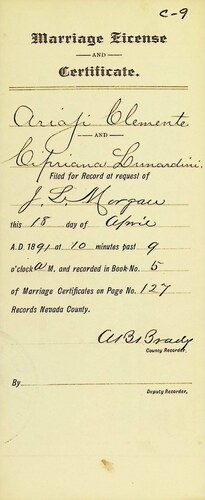 C-9
Marriage License
AND
Certificate.
Ariaji Clemente
AND
Cipriana Lunardini.
Filed for Record at request of
J. L. Morgan
this 18 day of April
A.D. 1891 at 10 minutes past 9
o'clock A M. and recorded in Book No. 5
of Marriage Certificates on Page No. 127
Records Nevada County.
A B Brady
County Recorder.
By
Deputy Recorder.